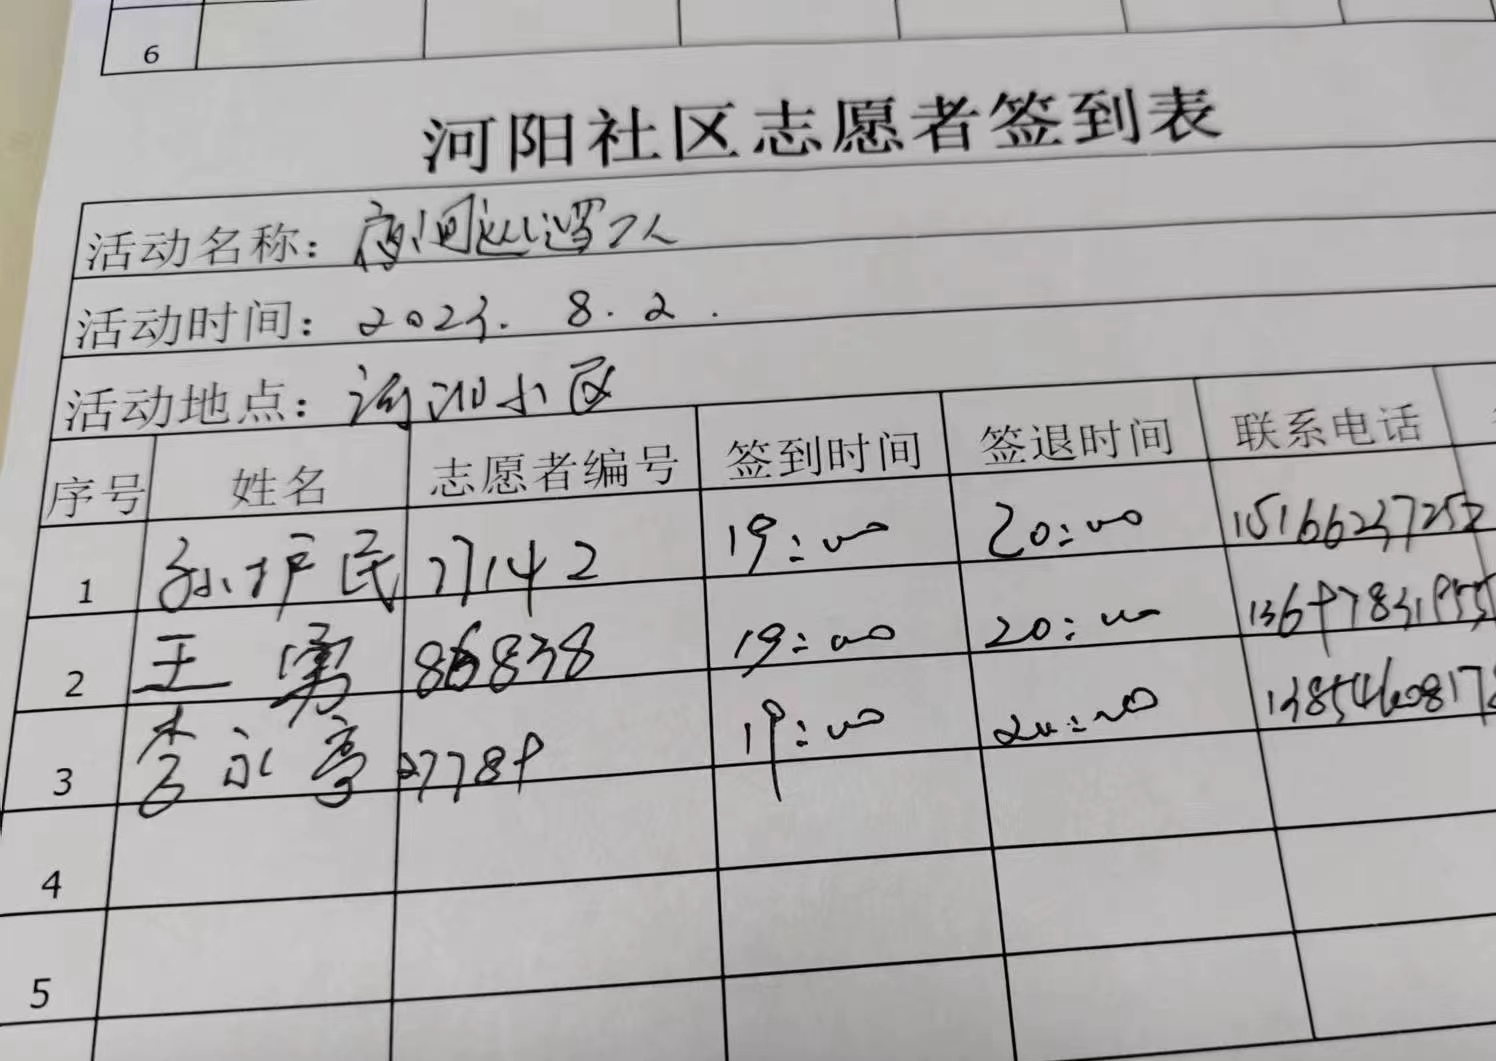 6
河阳社区志愿者签到表
活动名称：夜间巡逻2人
活动时间：2023.8.2.
活动地点：小区
序号 姓名 志愿者编号 签到时间 签退时间 联系电话
1 孙护民 77142 19:00 20:00 15166237252
2 王勇 86838 19:00 20:00
3 李永亭 27789 19:00 20:00
4
5